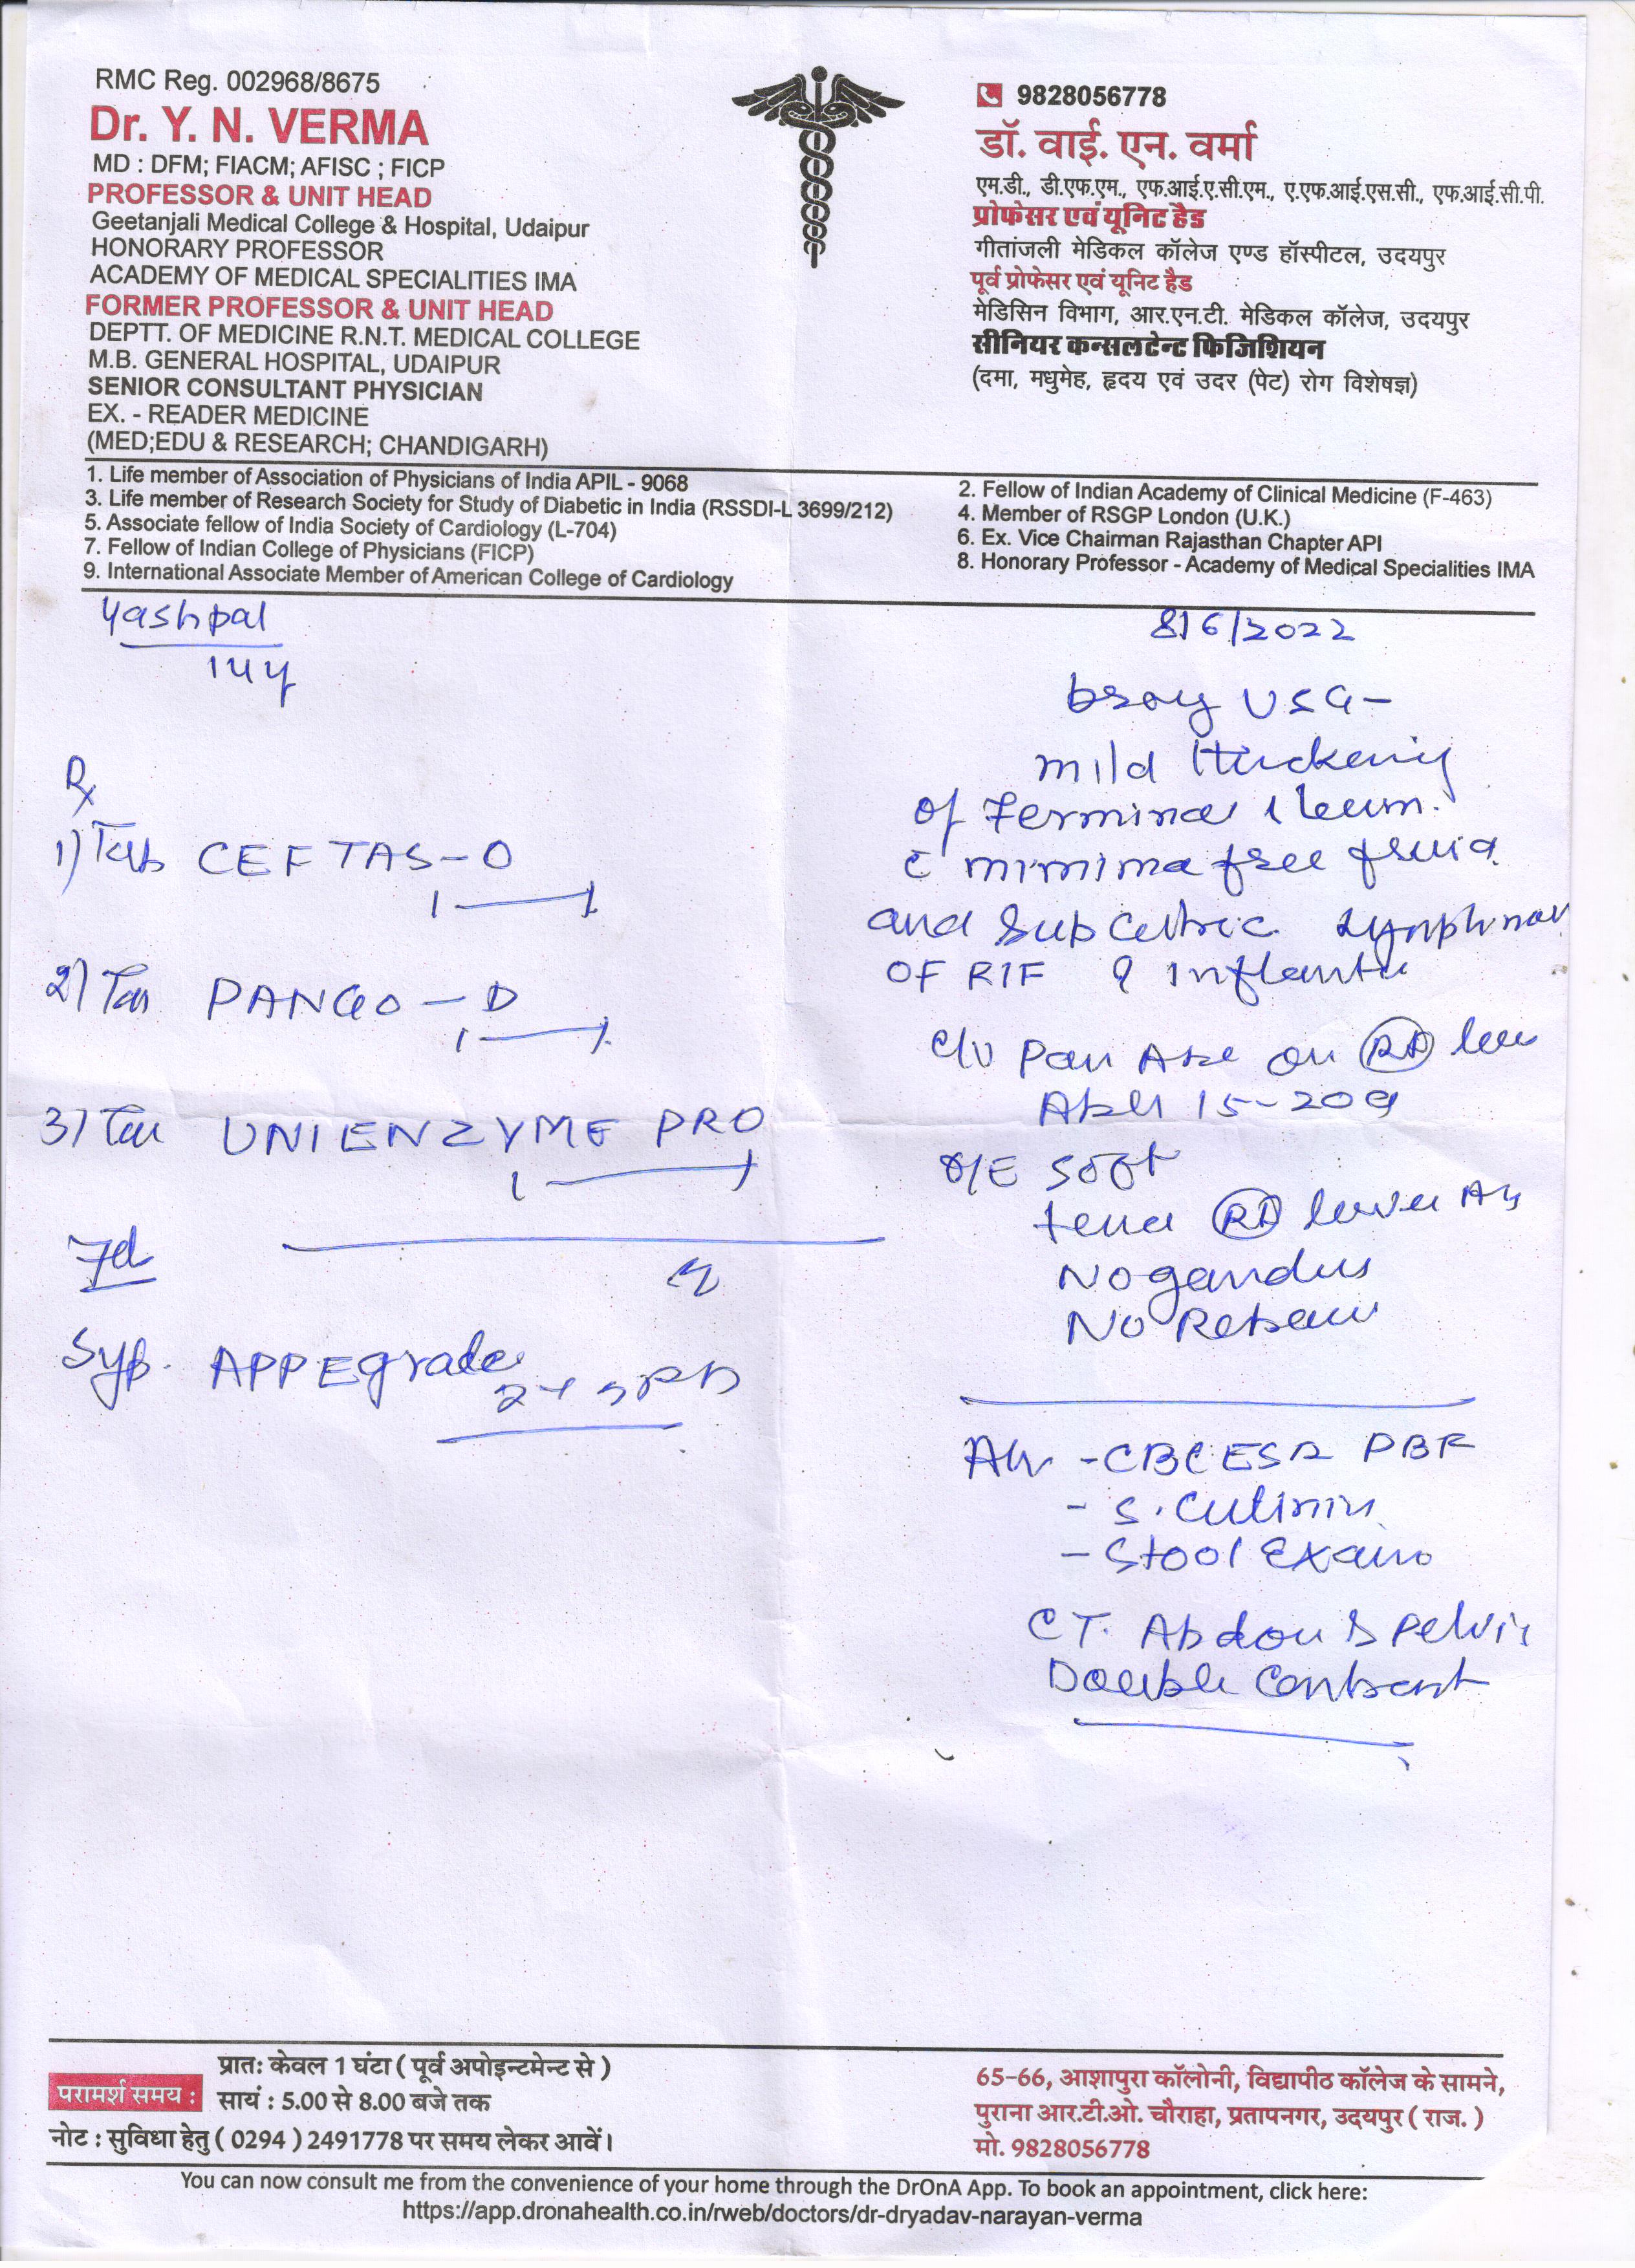 RMC Reg. 002968/8675
Dr. Y. N. VERMA
MD : DFM; FIACM; AFISC ; FICP
PROFESSOR & UNIT HEAD
Geetanjali Medical College & Hospital, Udaipur
HONORARY PROFESSOR
ACADEMY OF MEDICAL SPECIALITIES IMA
FORMER PROFESSOR & UNIT HEAD
DEPTT. OF MEDICINE R.N.T. MEDICAL COLLEGE
M.B. GENERAL HOSPITAL, UDAIPUR
SENIOR CONSULTANT PHYSICIAN
EX. - READER MEDICINE
(MED;EDU & RESEARCH; CHANDIGARH)
9828056778
डॉ. वाई. एन. वर्मा
एम.डी., डी.एफ.एम., एफ.आई.ए.सी.एम., ए.एफ.आई.एस.सी., एफ.आई.सी.पी.
प्रोफेसर एवं यूनिट हैड
गीतांजली मेडिकल कॉलेज एण्ड हॉस्पीटल, उदयपुर
पूर्व प्रोफेसर एवं यूनिट हैड
मेडिसिन विभाग, आर.एन.टी. मेडिकल कॉलेज, उदयपुर
सीनियर कन्सलटेन्ट फिजिशियन
(दमा, मधुमेह, हृदय एवं उदर (पेट) रोग विशेषज्ञ)
1. Life member of Association of Physicians of India APIL - 9068
3. Life member of Research Society for Study of Diabetic in India (RSSDI-L 3699/212)
5. Associate fellow of India Society of Cardiology (L-704)
7. Fellow of Indian College of Physicians (FICP)
9. International Associate Member of American College of Cardiology
2. Fellow of Indian Academy of Clinical Medicine (F-463)
4. Member of RSGP London (U.K.)
6. Ex. Vice Chairman Rajasthan Chapter API
8. Honorary Professor - Academy of Medical Specialities IMA
Yashpal
14y
Rx
1) Tab CEFTAS-O
2) PANGO-D
3) UNIENZYME PRO
7d
Syp. APPEgrade
8/6/2022
USG-
mild
of Terminal ileum.
c free
and Subcentric
OF RIF
on Rt
15-20
O/E Soft
Rt lower
No
No
- CBC ESR PBF
- S.
- Stool Exam
CT. Abdom & Pelvis
Double Contrast
परामर्श समय :
प्रातः केवल 1 घंटा ( पूर्व अपोइन्टमेन्ट से )
सायं : 5.00 से 8.00 बजे तक
नोट : सुविधा हेतु ( 0294 ) 2491778 पर समय लेकर आवें।
65-66, आशापुरा कॉलोनी, विद्यापीठ कॉलेज के सामने,
पुराना आर.टी.ओ. चौराहा, प्रतापनगर, उदयपुर ( राज. )
मो. 9828056778
You can now consult me from the convenience of your home through the DrOnA App. To book an appointment, click here:
https://app.dronahealth.co.in/rweb/doctors/dr-dryadav-narayan-verma